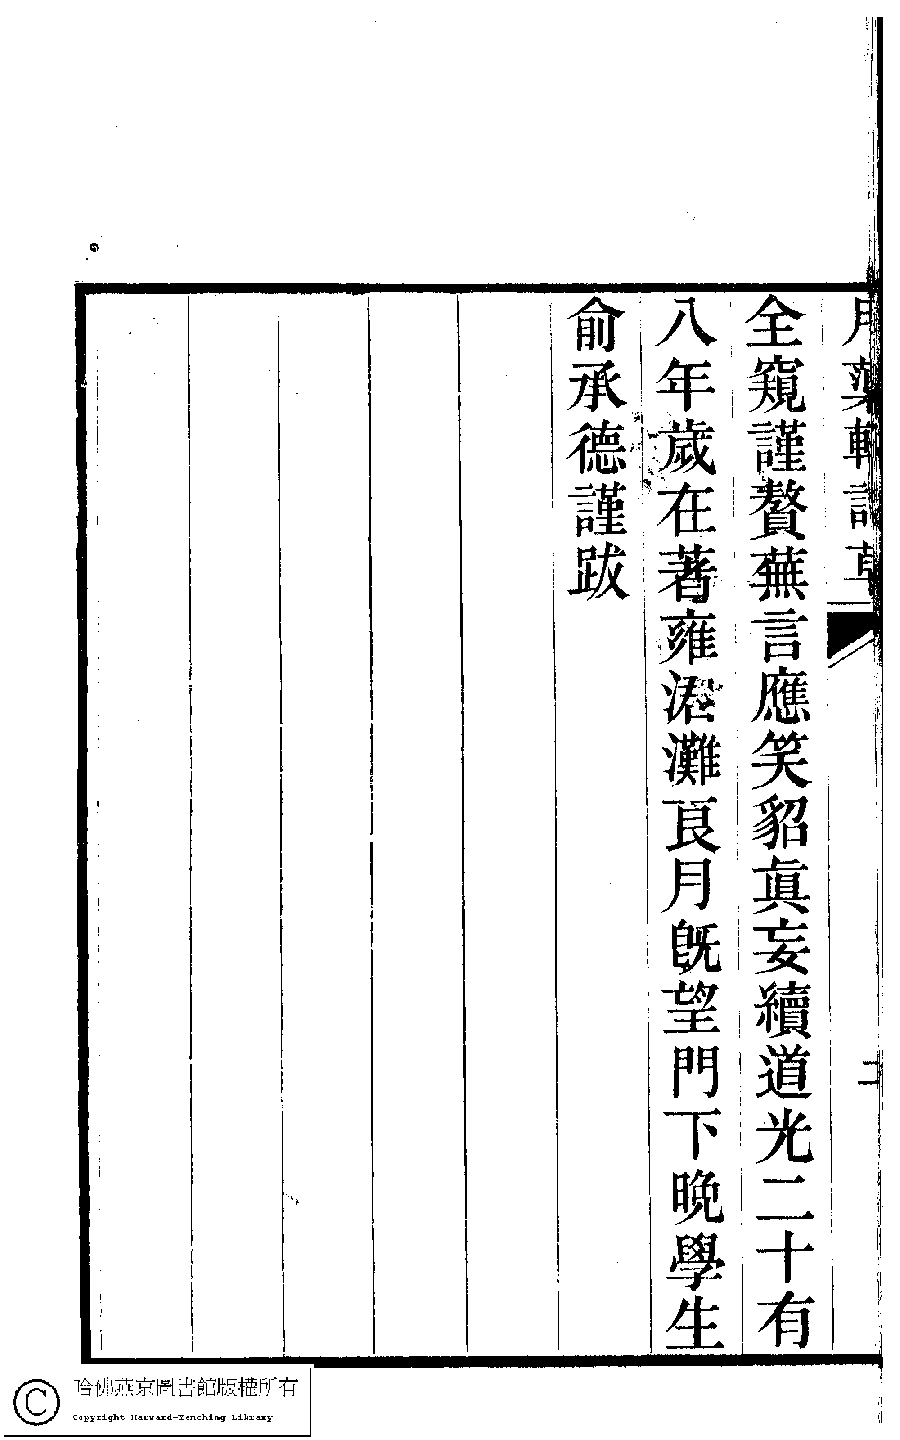 月蕖軒詩草 二
全窺謹贅蕪言應笑貂眞妄續道光二十有
八年歲在著雍涒灘良月旣望門下晚學生
俞承德謹跋
哈佛燕京圖書館版權所有
Copyright Harvard-Yenching Library